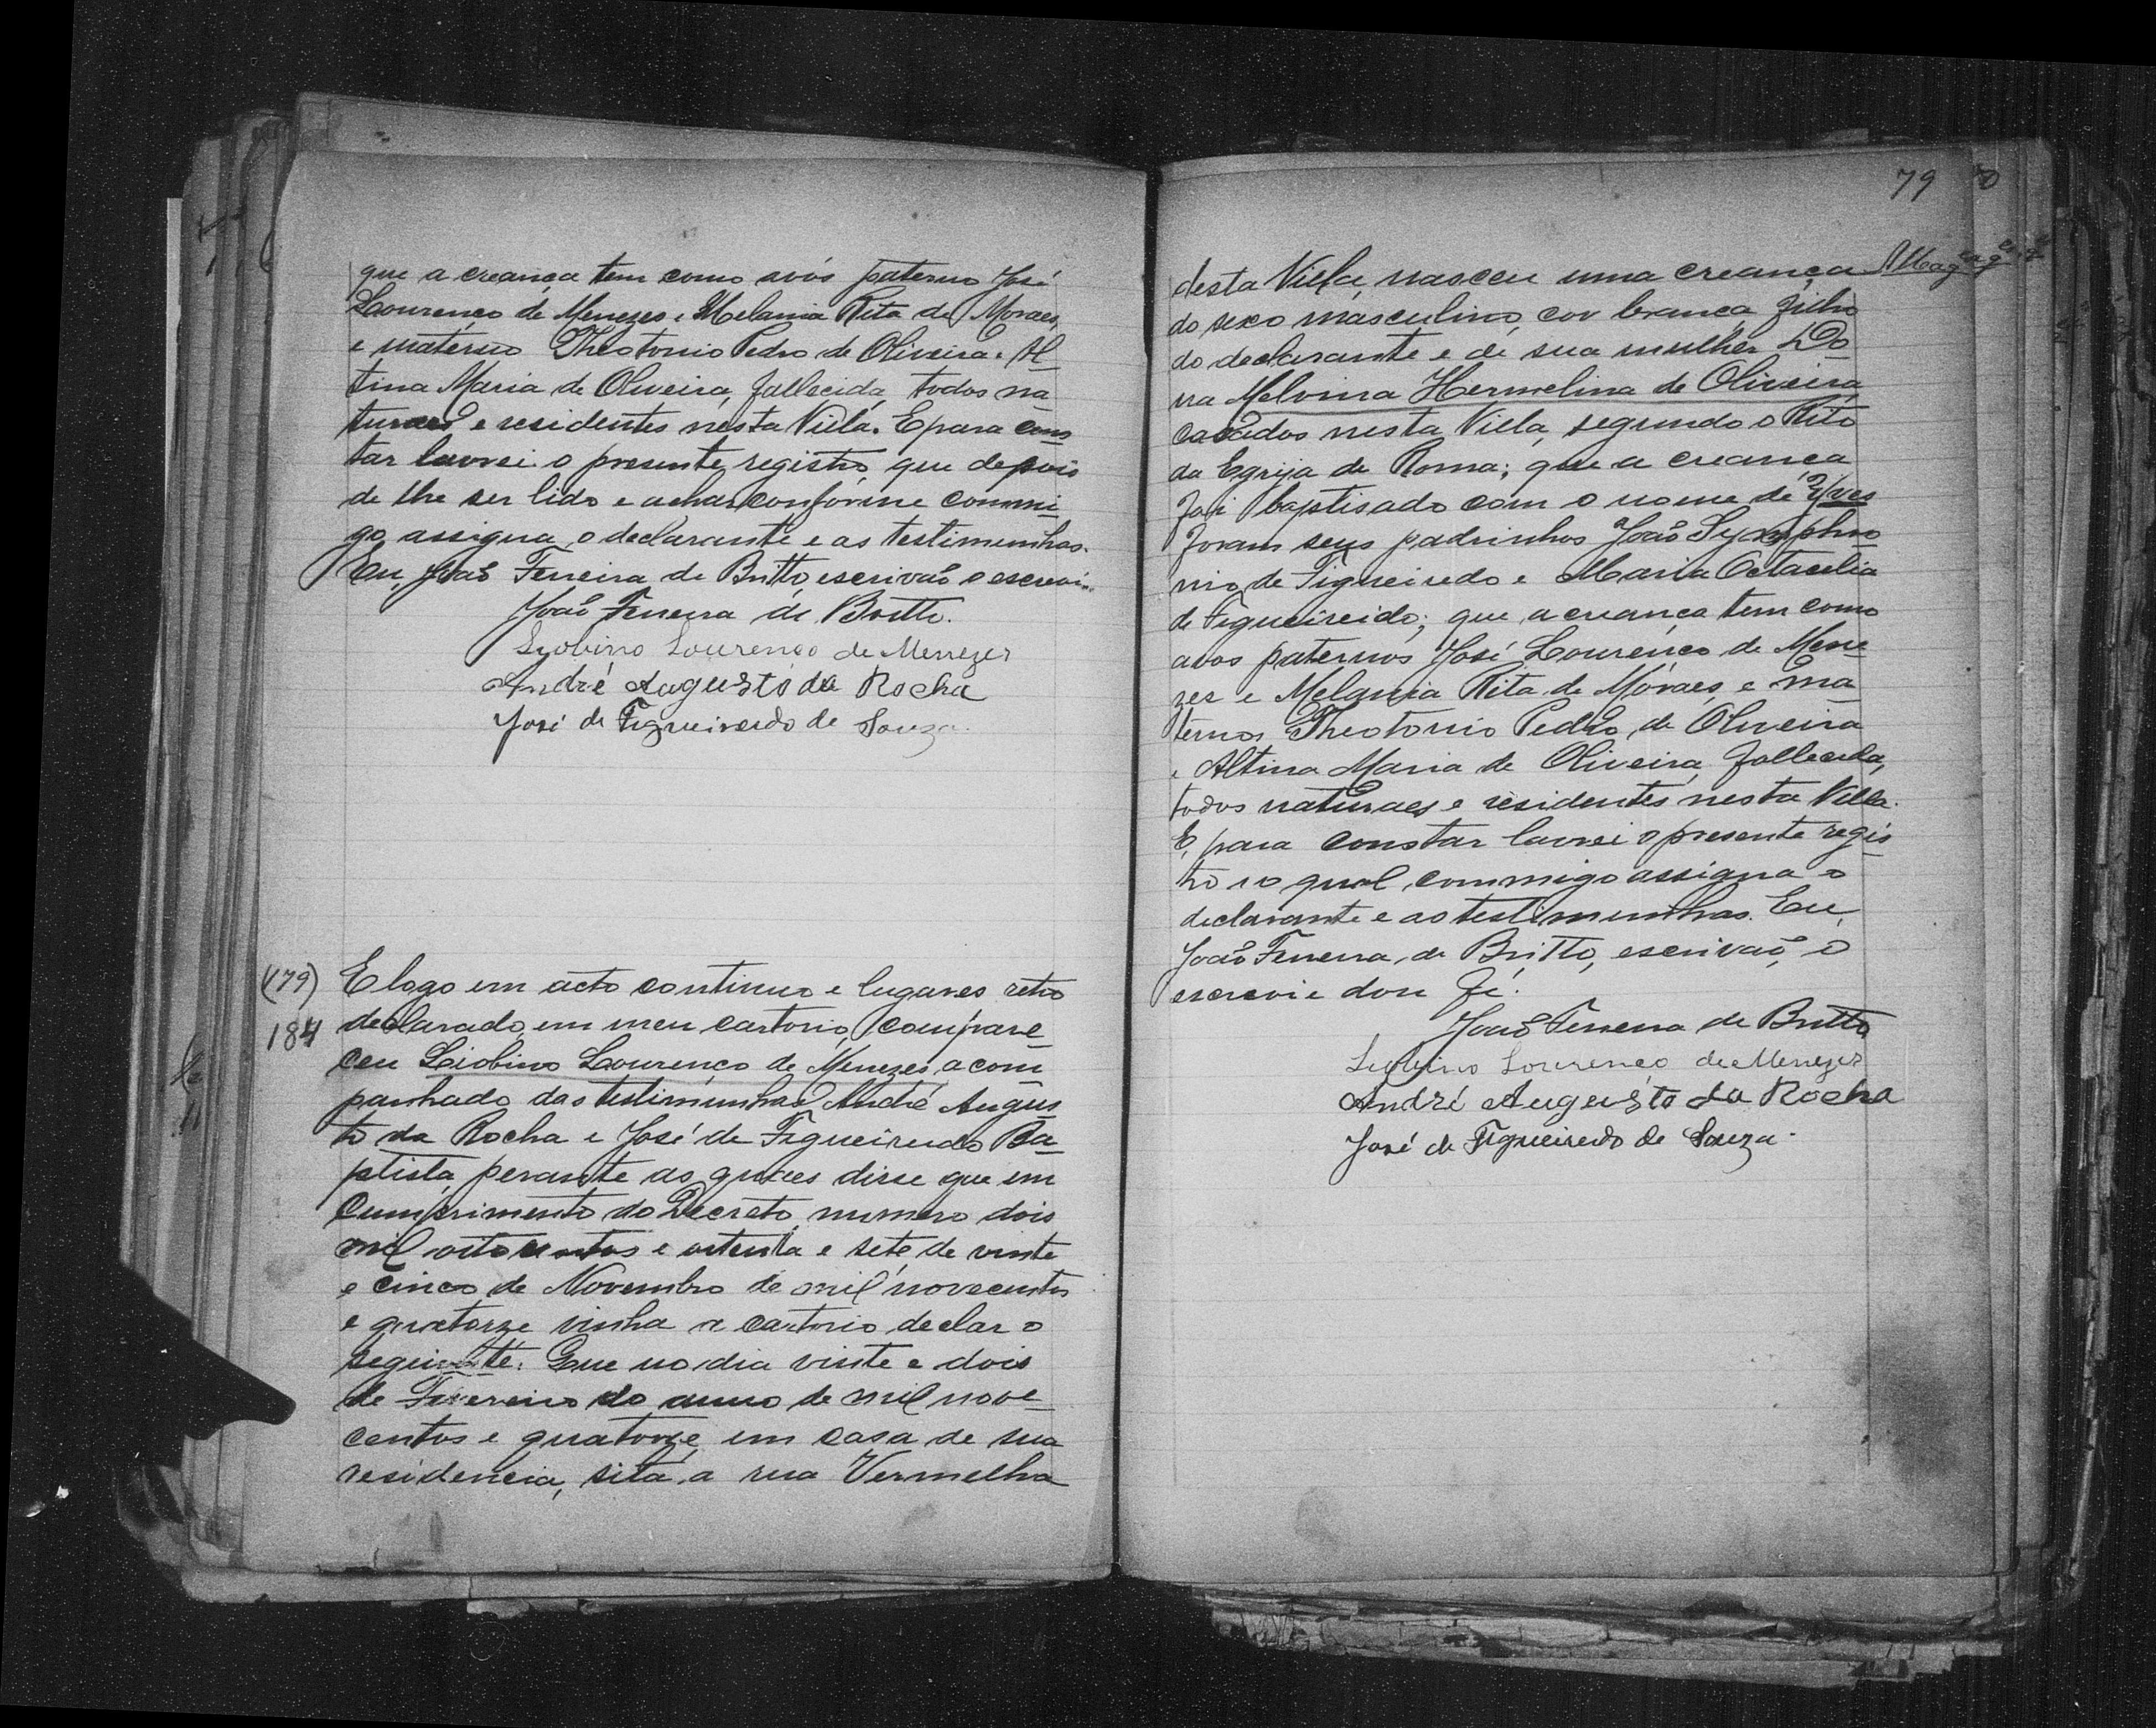 que a creança tem como avós paterno José
Lourenço de Menezes e Melania Rita de Moraes,
e materno Theotonio Pedro de Oliveira e Al
tina Maria de Oliveira, fallecida, todos na
turaes e residentes nesta Villa. E para cons
tar lavrei o presente registro, que depois
de lhe ser lido e achar conforme commi
go assigna o declarante e as testimunhas.
Eu, João Ferreira de Britto, escrivão o escrevi.
João Ferreira de Britto.
Lyobino Lourenço de Menezes
André Augusto da Rocha
José de Figueiredo de Souza.
(179)
184
E logo em acto continuo e lugares retro
declarado, em meu cartorio, compare
ceu Liobino Lourenço de Menezes, acom
panhado das testimunhas André Augus
to da Rocha e José de Figueiredo Ba
ptista, perante as quaes disse que em
cumprimento do Decreto numero dois
mil oitocentos e oitenta e sete de vinte
e cinco de Novembro de mil novecentos
e quatorze vinha a cartorio declar o
seguinte: Que no dia vinte e dois
de Fevereiro do anno de mil nove
centos e quatorze em casa de sua
residencia, sita a rua Vermelha
79
desta Villa, nasceu uma creança
do sexo masculino, cor branca, filho
do declarante e de sua mulher Do
na Melvina Hermelina de Oliveira,
casados nesta Villa, segundo o Rito
da Egrija de Roma; que a creança
foi baptisado com o nome de Yves
foram seus padrinhos João Symphro
nio de Figueiredo e Maria Octacelia
de Figueireido; que a creança tem como
avos paternos José Lourenço de Mene
zes e Melania Rita de Moraes, e ma
ternos Theotonio Pedro de Oliveira
e Altina Maria de Oliveira, fallecida,
todos naturaes e residentes nesta Villa.
E, para constar lavrei o presente regis
tro o qual commigo assigna o
declarante e as testimunhas. Eu,
João Ferreira de Britto, escrivão, o
escrevi e dou fé.
João Ferreira de Britto
Lyobino Lourenço de Menezes
André Augusto da Rocha
José de Figueiredo de Souza.